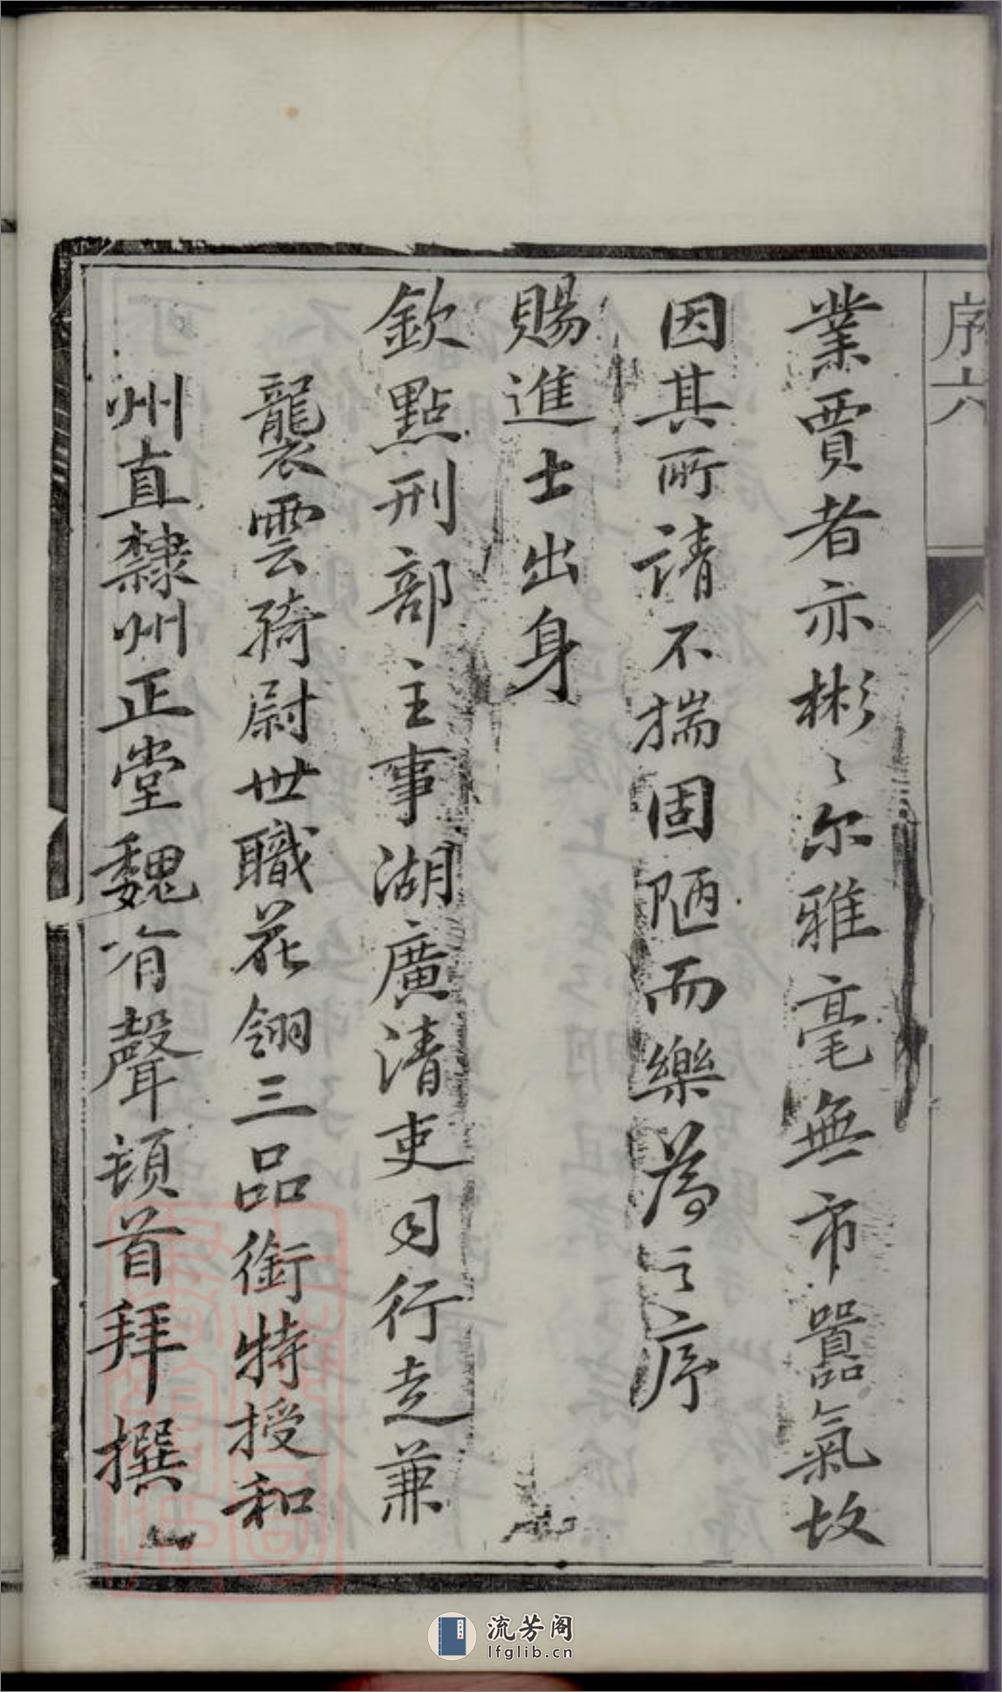 序六
業賈者亦彬〻尔雅毫無市囂氣故
因其所請不揣固陋而樂為之序
賜進士出身
欽點刑部主事湖廣清吏司行走兼
襲雲騎尉世職花翎三品銜特授和
州直隸州正堂魏有聲頓首拜撰
流芳阁
lfglib.cn